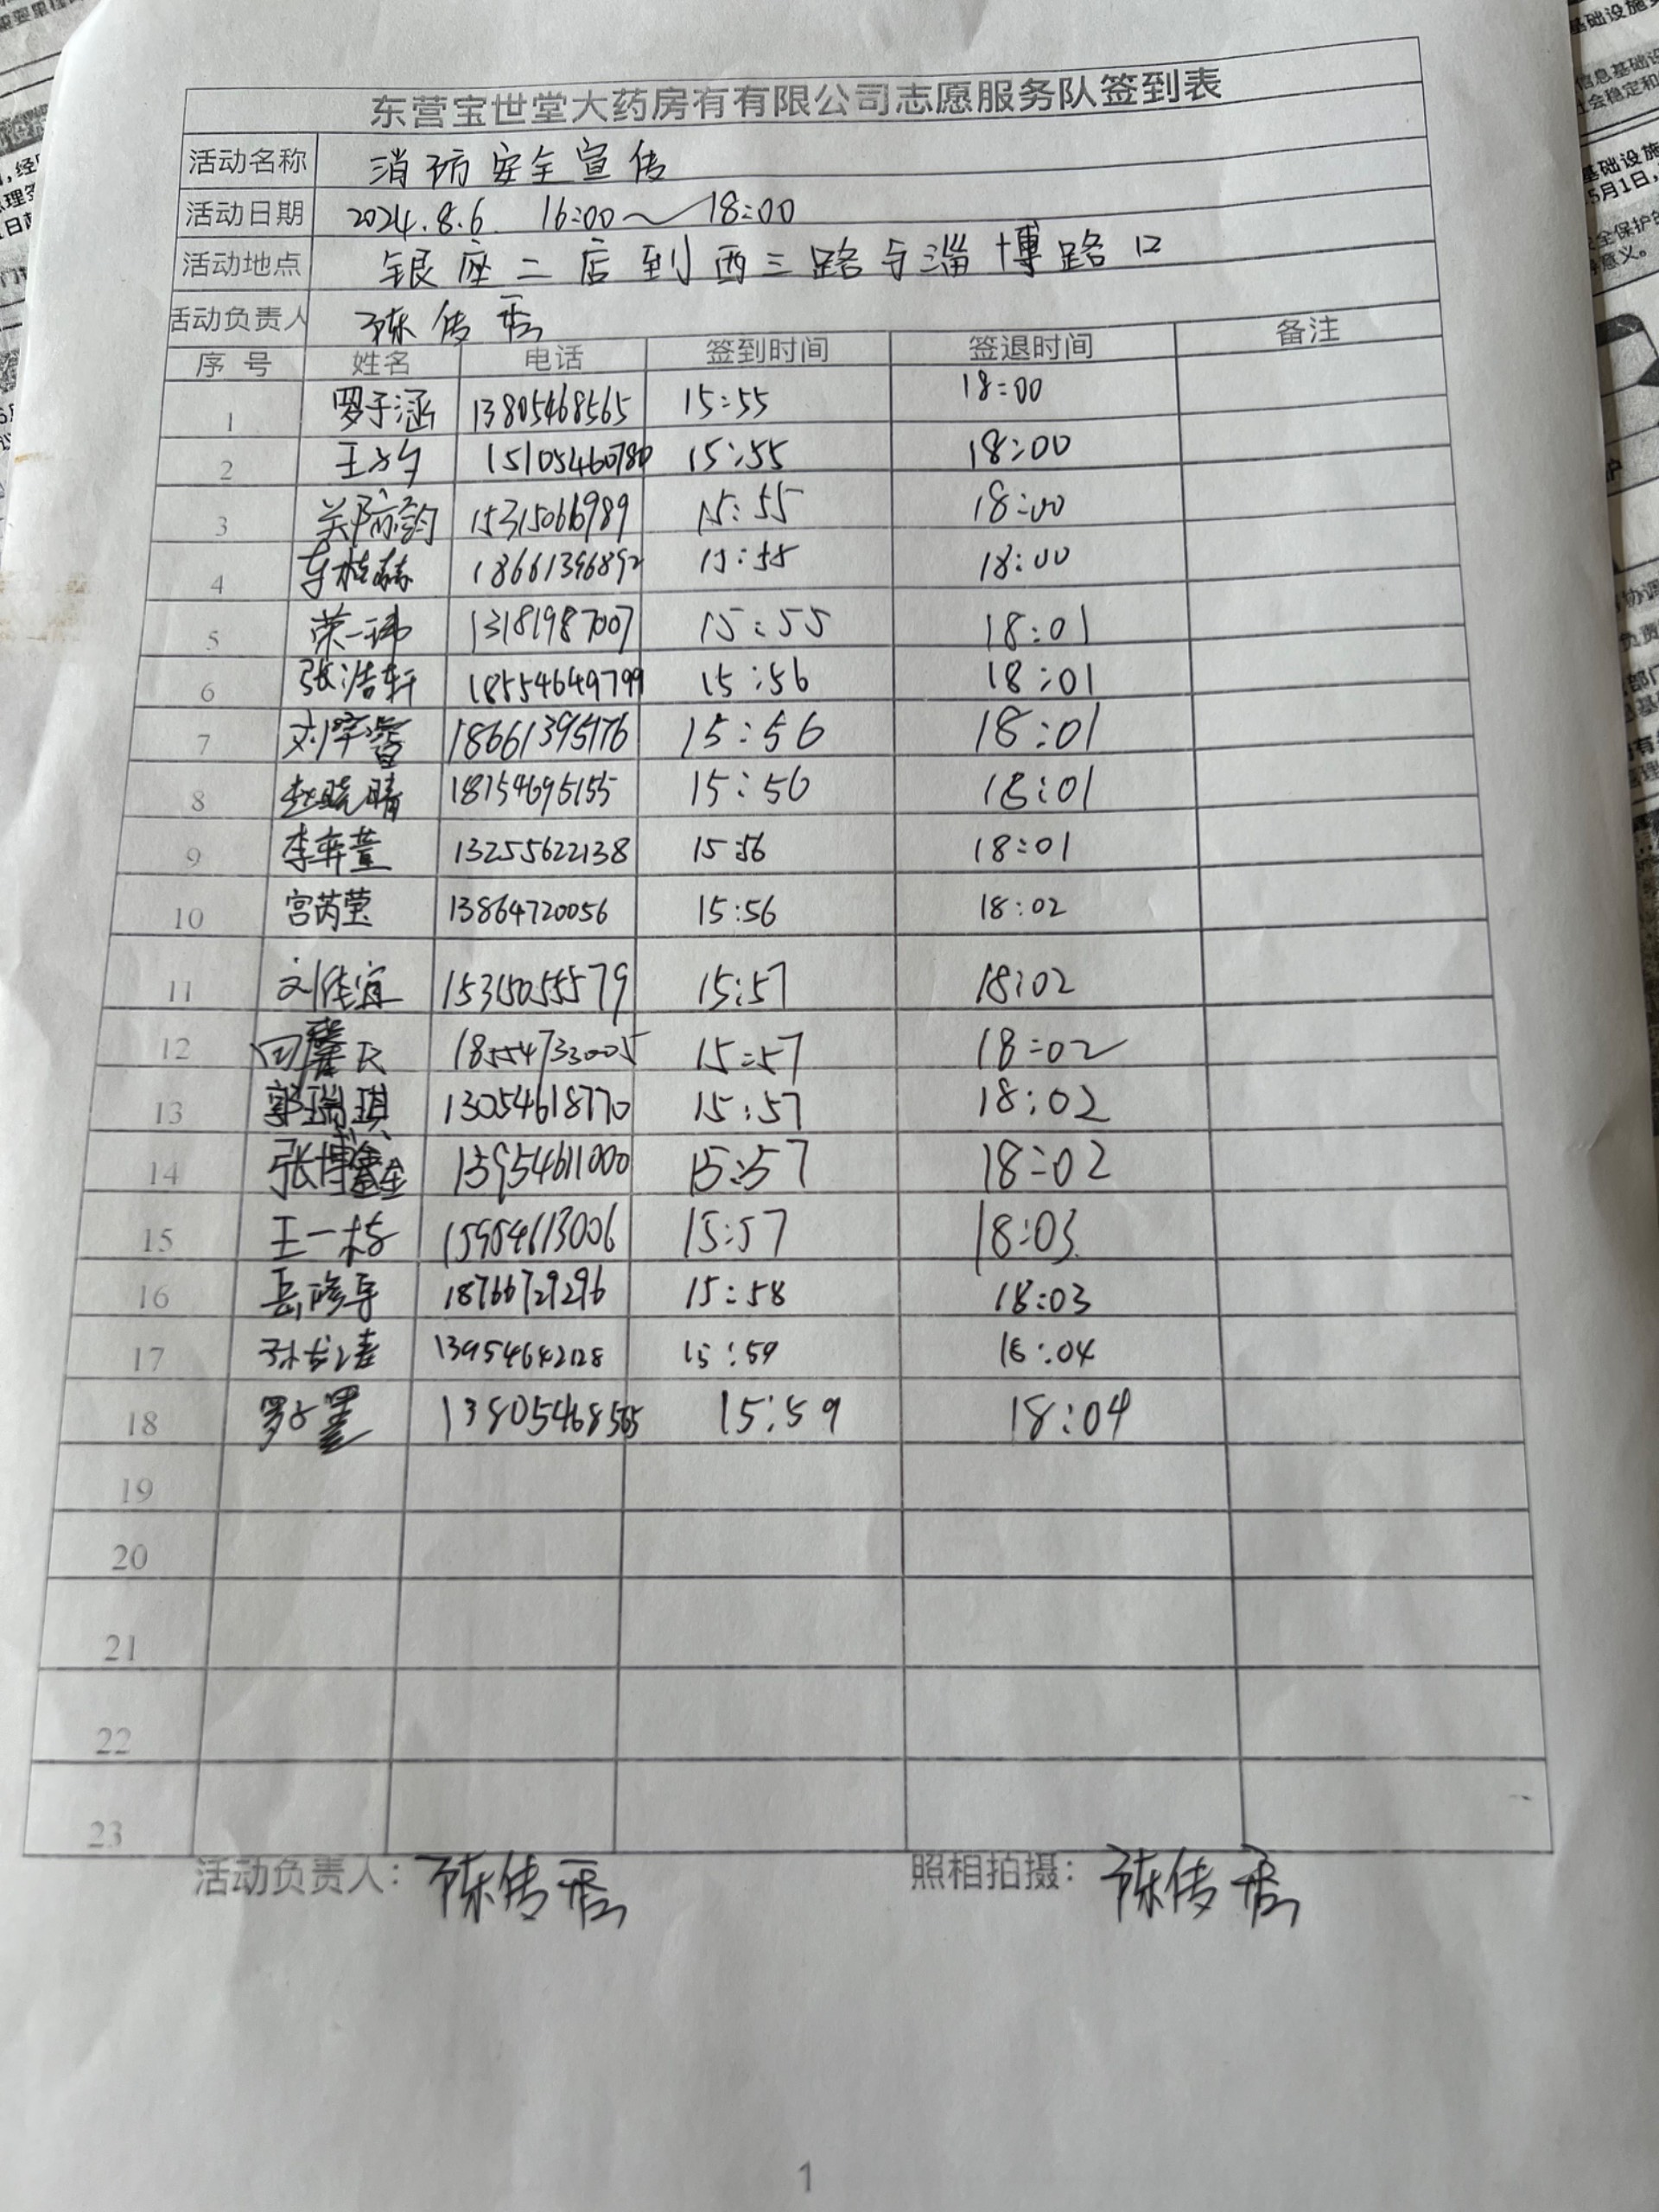 东营宝世堂大药房有有限公司志愿服务队签到表
活动名称 消防安全宣传
活动日期 2024.8.6 16:00～18:00
活动地点 银座二店到西三路与淄博路口
活动负责人 陈传香
序号 姓名 电话 签到时间 签退时间 备注
1 罗子涵 13805468565 15:55 18:00
2 王夕 15105460780 15:55 18:00
3 15315066989 15:55 18:00
4 18661396892 15:55 18:00
5 荣一玮 13181987007 15:55 18:01
6 张浩轩 18554649799 15:56 18:01
7 刘宇睿 18661395176 15:56 18:01
8 赵晓晴 18754695155 15:56 18:01
9 李弈萱 13255622138 15:56 18:01
10 宫芮莹 13864720056 15:56 18:02
11 刘佳宜 15315055579 15:57 18:02
12 18554733005 15:57 18:02
13 郭瑞琪 13054618770 15:57 18:02
14 张博鑫 13954611000 15:57 18:02
15 王一格 15954613006 15:57 18:03
16 18766729296 15:58 18:03
17 13954642128 15:59 18:04
18 罗子墨 13805468565 15:59 18:04
19
20
21
22
23
活动负责人：陈传香 照相拍摄：陈传香
1